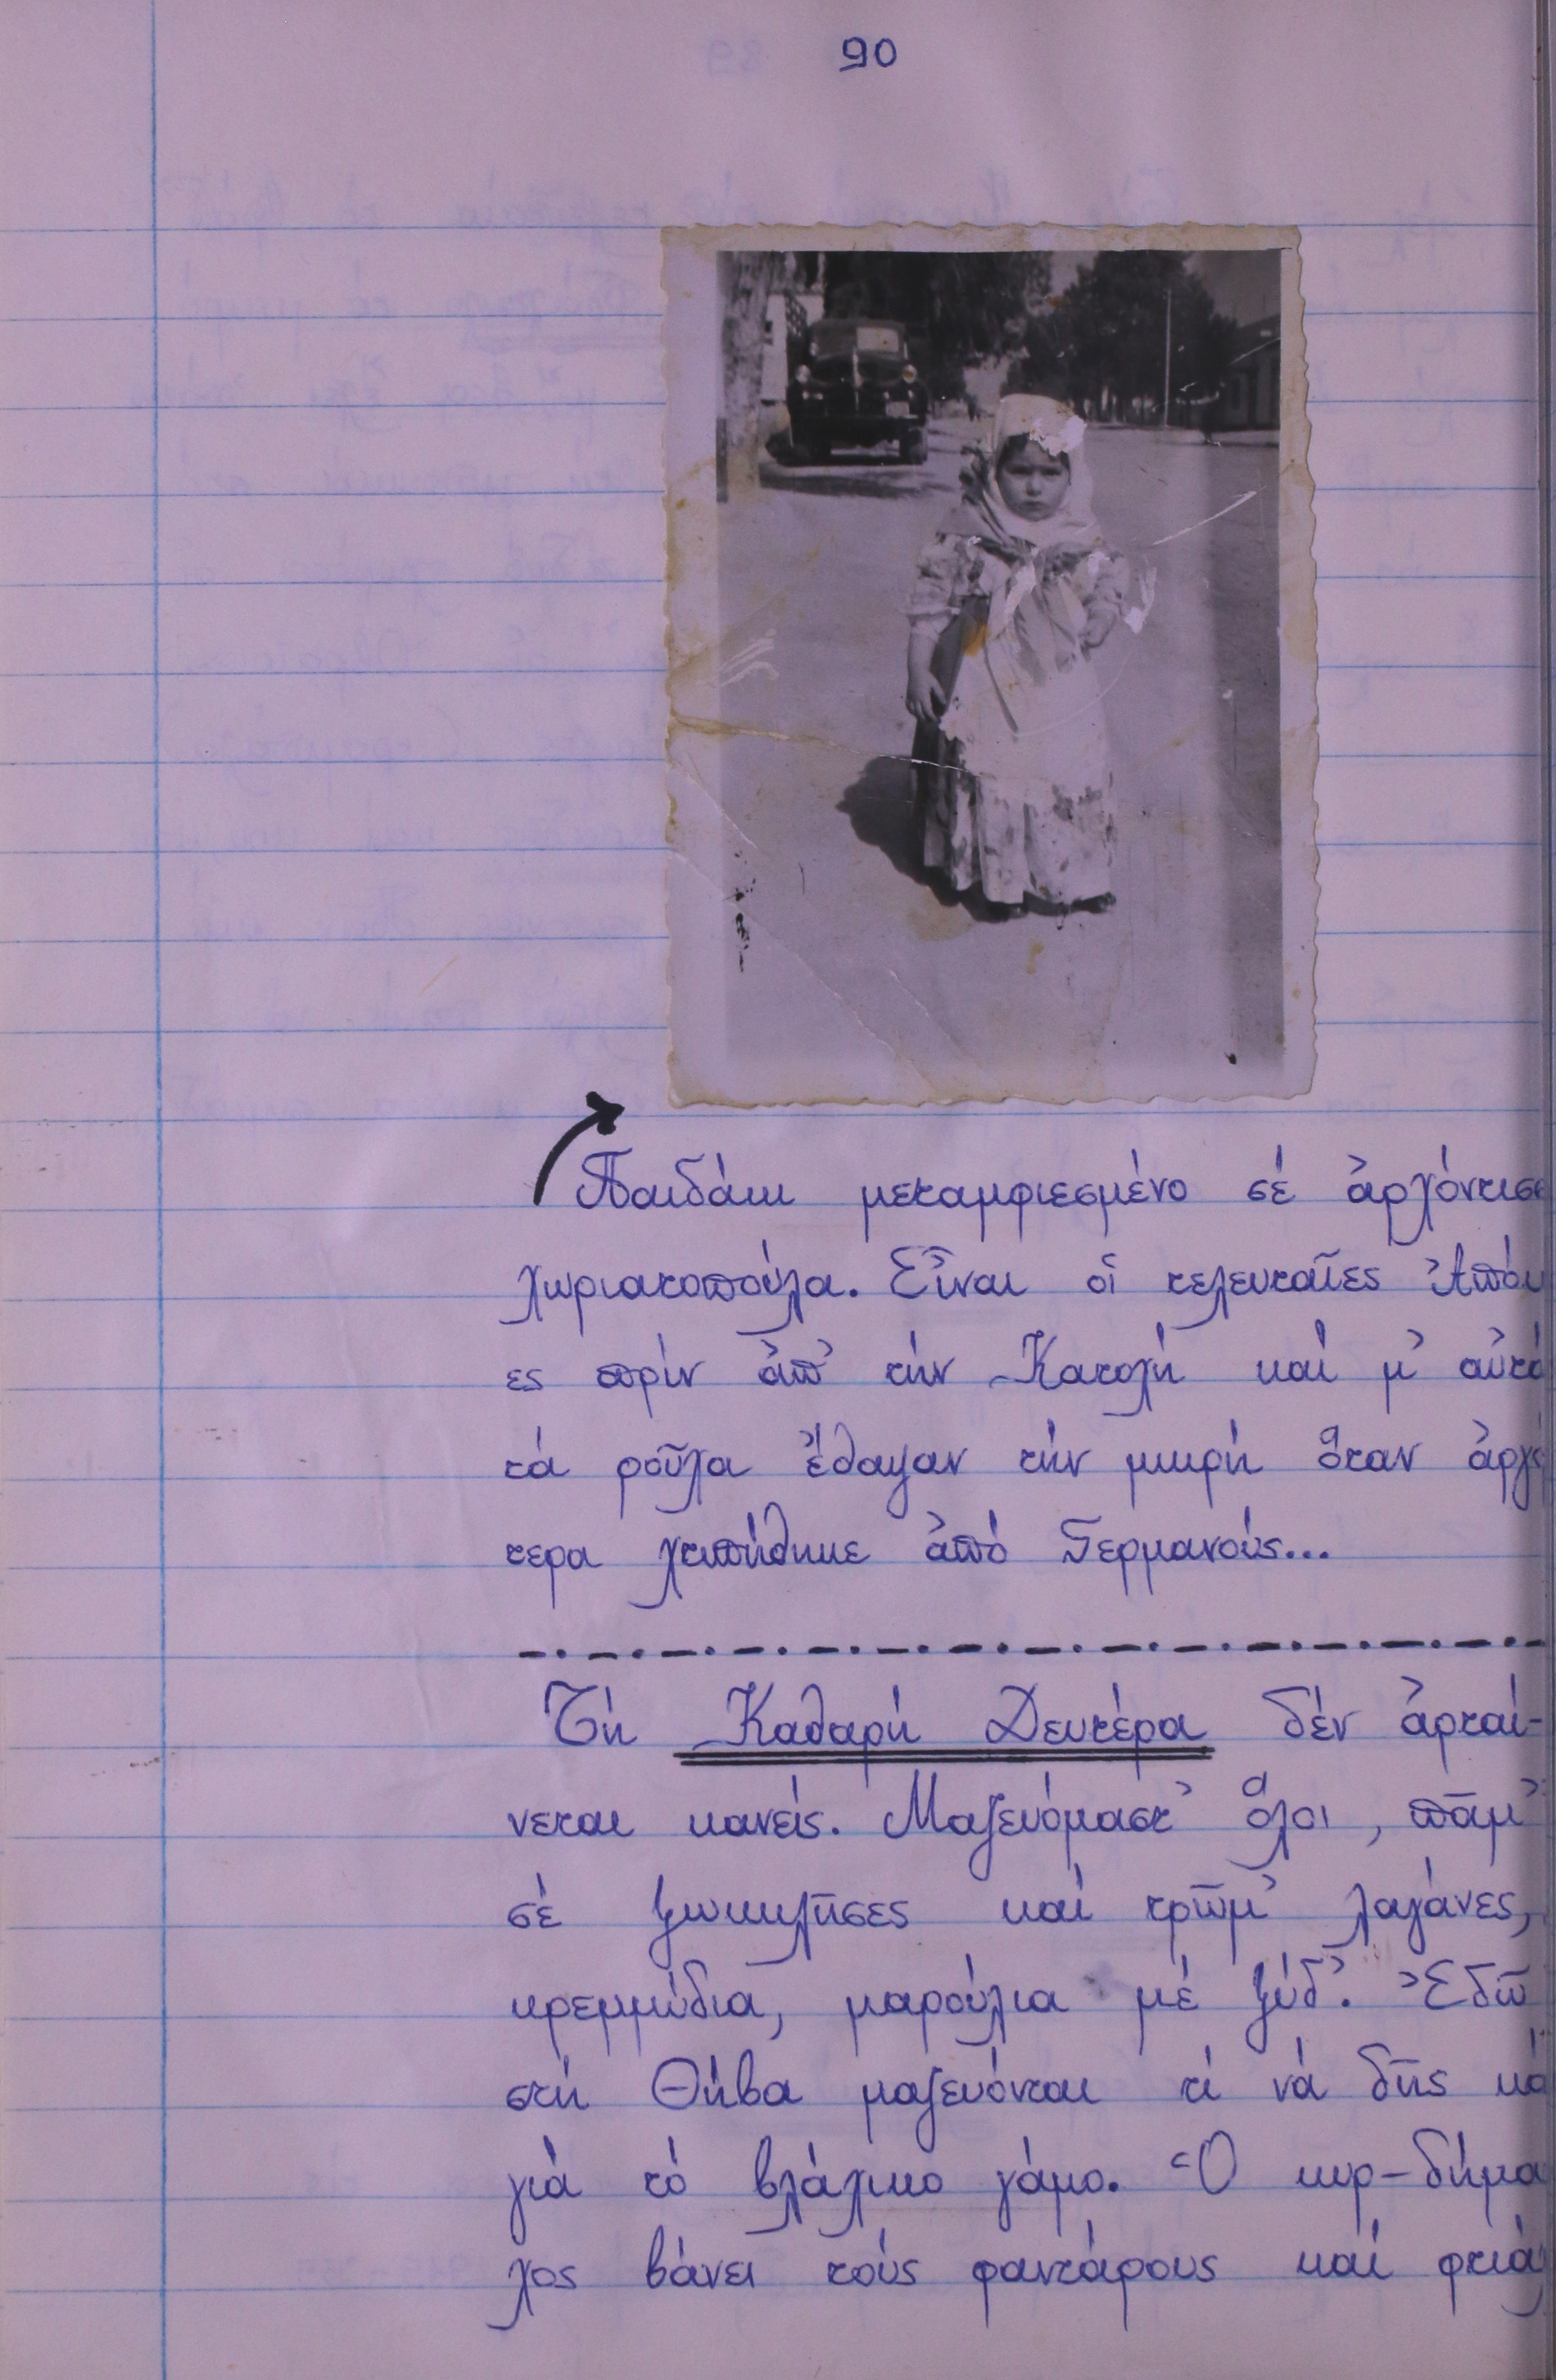 90
Παιδάκι μεταμφιεσμένο σέ ἀρχόντισσ
χωριατοπούλα. Εἶναι οἱ τελευταῖες Ἀπόκ
ες πρίν ἀπ' τήν Κατοχή καί μ' αὐτά
τά ροῦχα ἔθαψαν τήν μικρή ὅταν ἀργό
τερα χτυπήθηκε ἀπό Γερμανούς...
Τή Καθαρή Δευτέρα δέν ἀρταί-
νεται κανείς. Μαζευόμαστ' ὅλοι, πᾶμ'
σέ ξωκκλῆσες καί τρῶμ' λαγάνες,
κρεμμύδια, μαρούλια μέ ξύδ'. Ἐδῶ
στή Θήβα μαζεύονται τί νά δῆς κά
γιά τό βλάχικο γάμο. Ὁ κυρ-δήμα
χος βάνει τούς φαντάρους καί φτιά